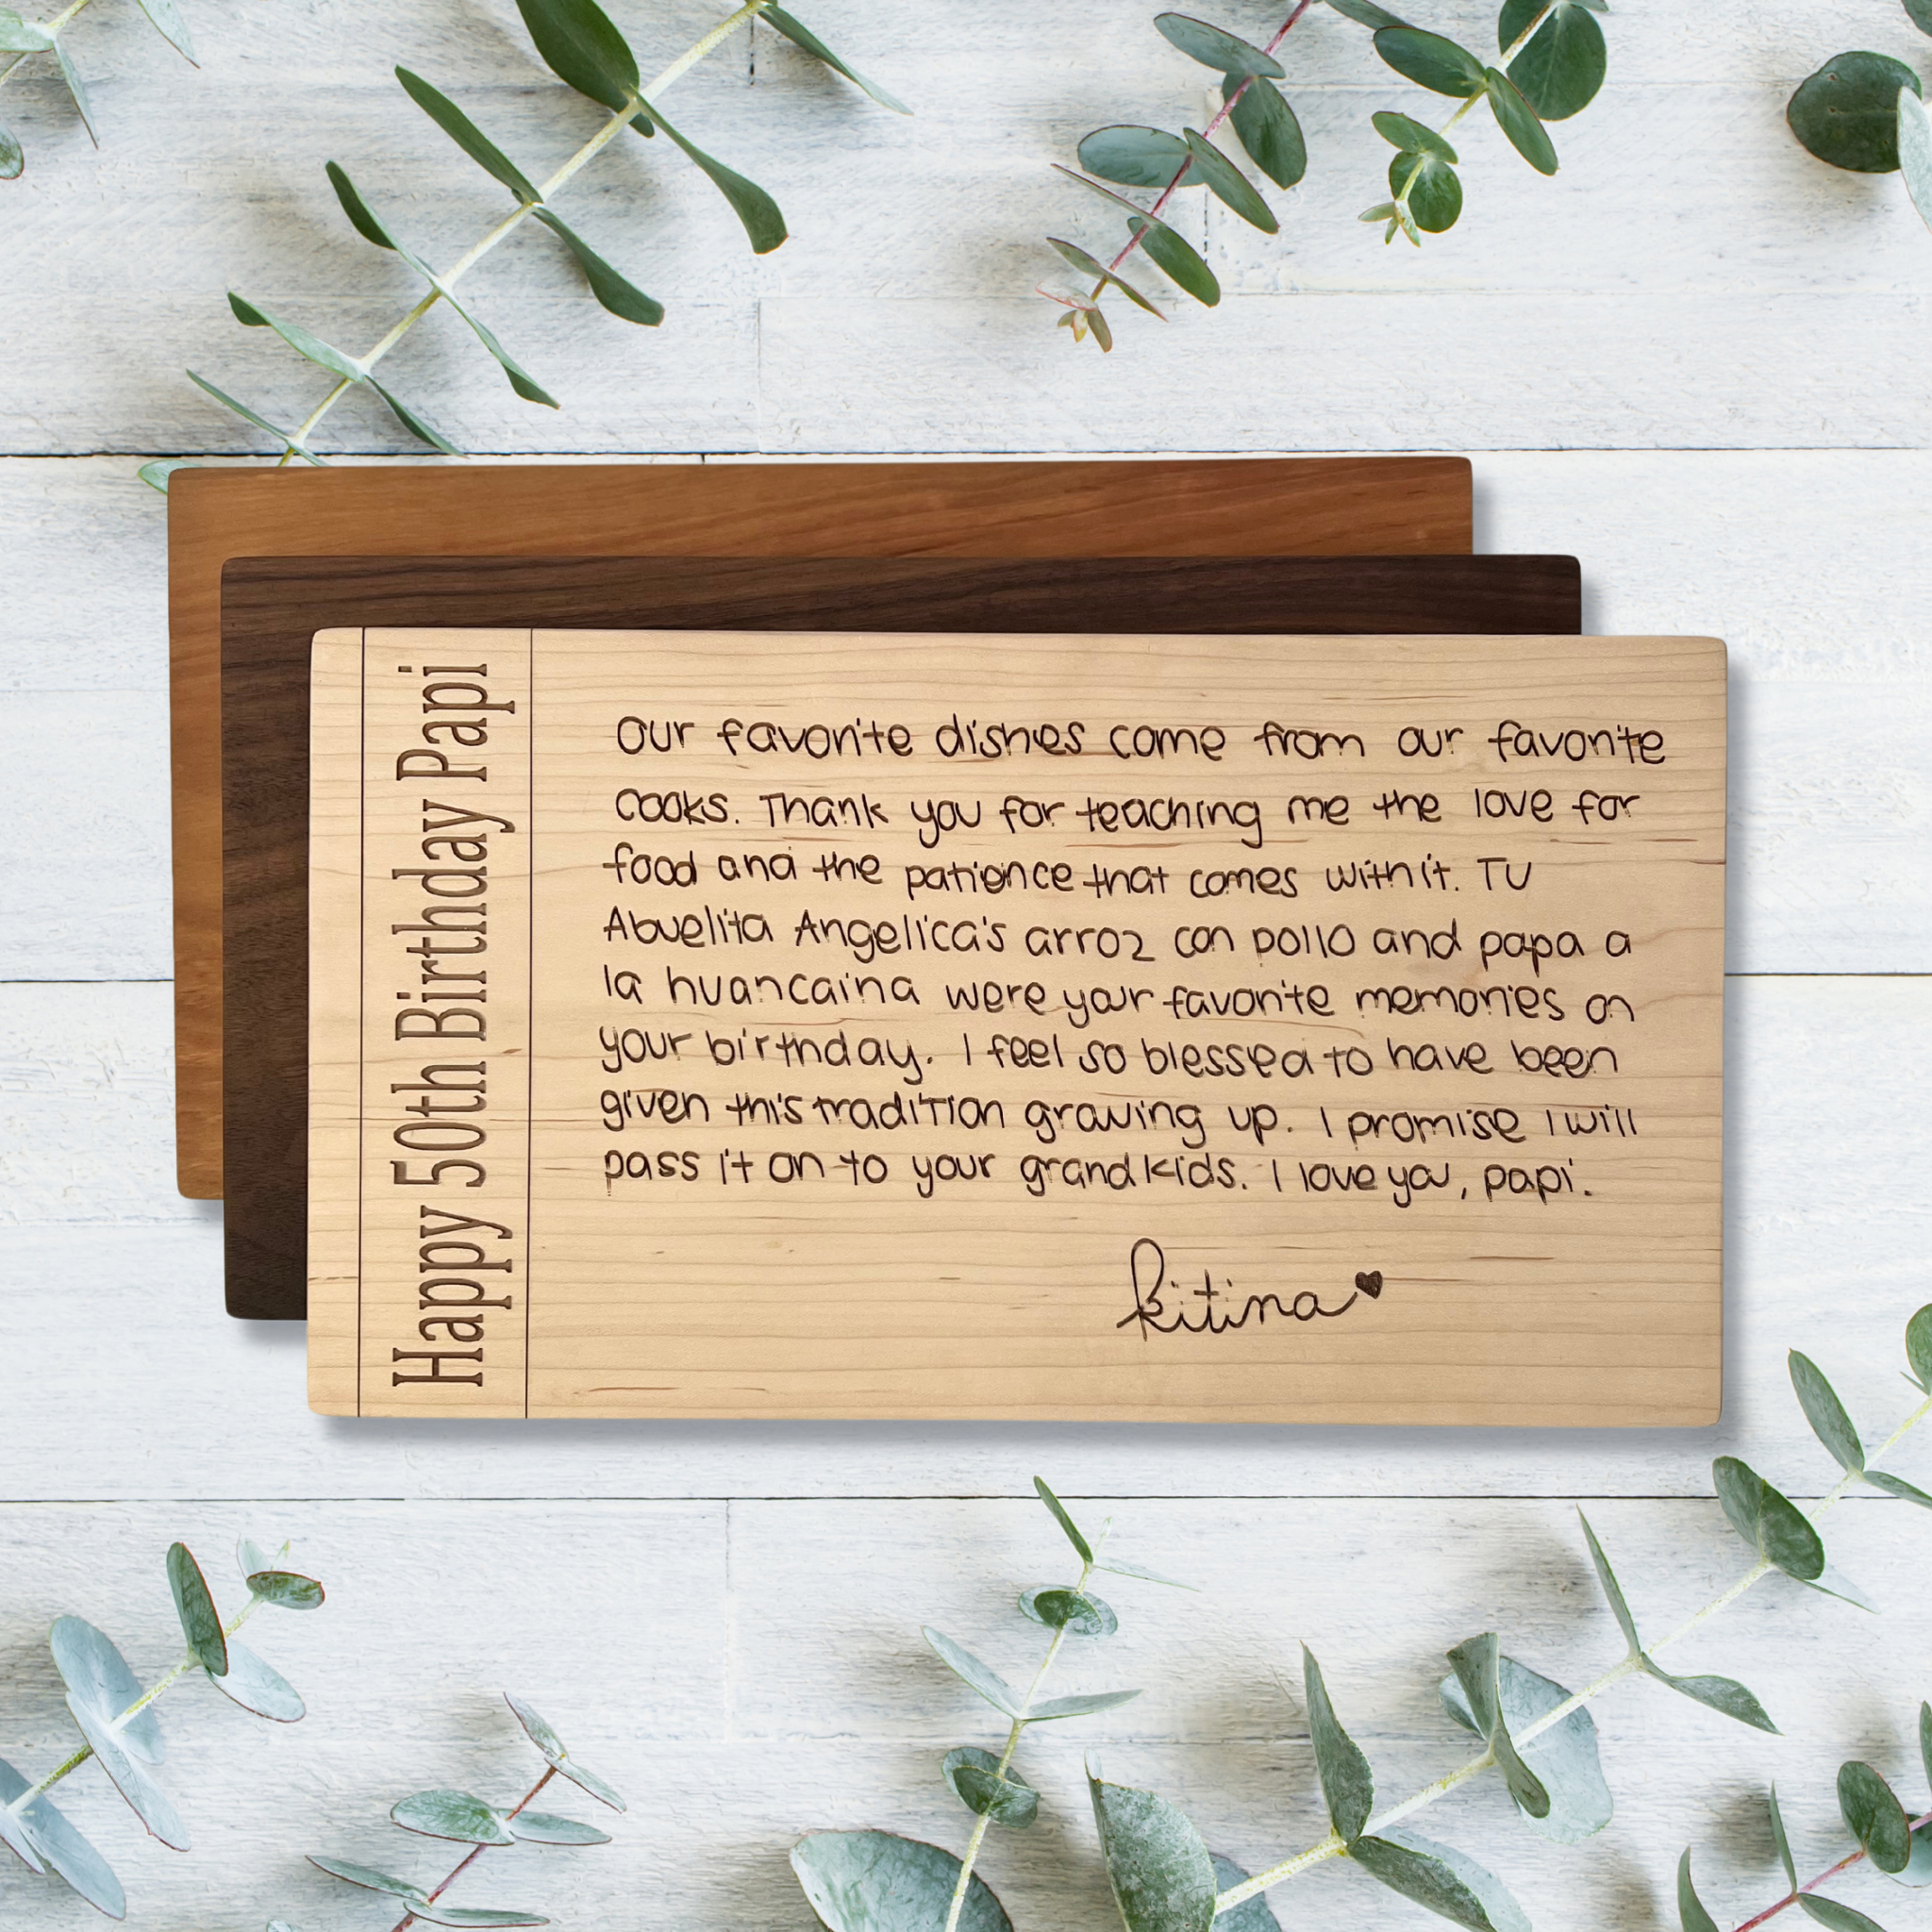 Happy 50th Birthday Papi
Our favorite dishes come from our favorite
cooks. Thank you for teaching me the love for
food and the patience that comes with it. TU
Abuelita Angelica's arroz con pollo and papa a
la huancaina were your favorite memories on
your birthday. I feel so blessed to have been
given this tradition growing up. I promise I will
pass it on to your grandkids. I love you, papi.
kitina♥